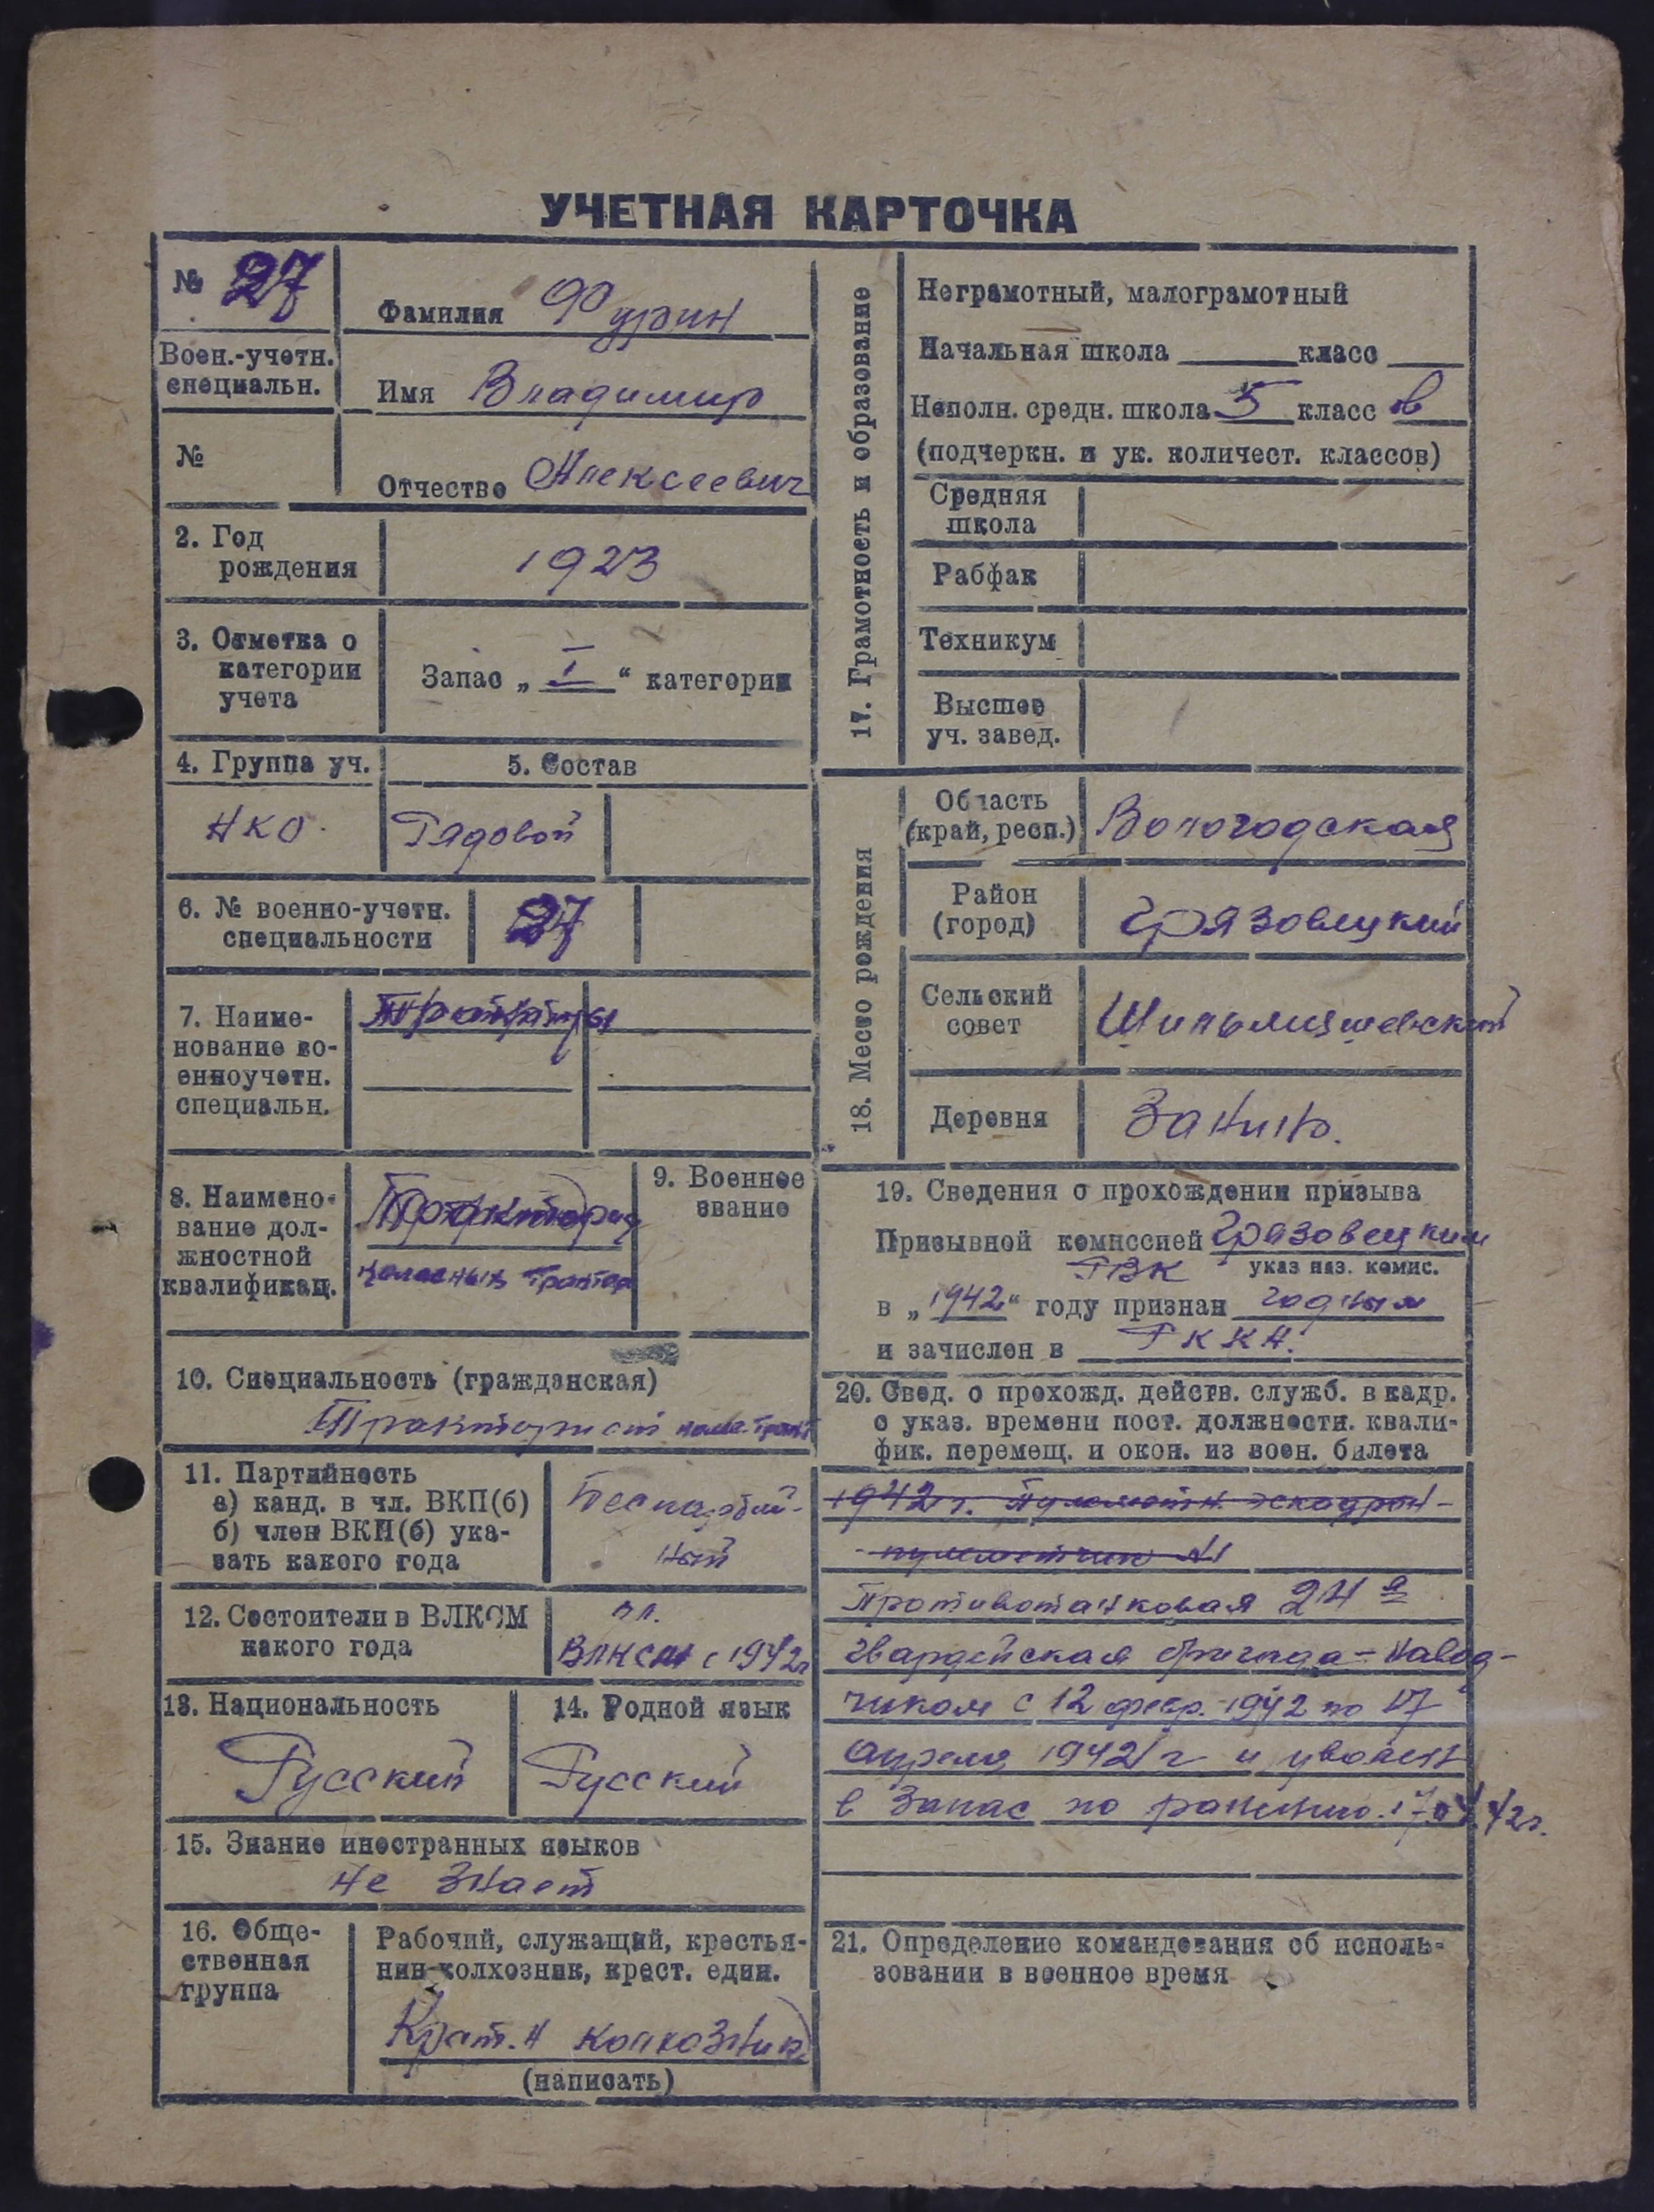 УЧЕТНАЯ КАРТОЧКА
№ 27
Фамилия Фурин
Воен.-учетн.
специальн.
Имя Владимир
№
Отчество Алексеевич
2. Год
рождения
1923
3. Отметка о
категории
учета
Запас „ I “ категории
4. Группа уч.
5. Состав
НКО.
Рядовой
6. № военно-учетн.
специальности
27
7. Наиме-
нование во-
енноучетн.
специальн.
8. Наимено-
вание дол-
жностной
квалификац.
9. Военное
звание
10. Специальность (гражданская)
Тракторист
11. Партийность
а) канд. в чл. ВКП(б)
б) член ВКП(б) ука-
зать какого года
Беспартий-
ный
12. Состоители в ВЛКСМ
какого года
чл.
ВЛКСМ с 1942г
13. Национальность
Русский
14. Родной язык
Русский
15. Знание иностранных языков
не знает
16. Обще-
ственная
группа
Рабочий, служащий, крестья-
нин-колхозник, крест. един.
колхозник
(написать)
17. Грамотность и образование
Неграмотный, малограмотный
Начальная школа класс
Неполн. средн. школа 5 класс ов
(подчеркн. и ук. количест. классов)
Средняя
школа
Рабфак
Техникум
Высшее
уч. завед.
18. Место рождения
Область
(край, респ.)
Вологодская
Район
(город)
Грязовецкий
Сельский
совет
Деревня
Занино.
19. Сведения о прохождении призыва
Призывной комиссией Грязовецким
РВК указ наз. комис.
в „1942“ году признан годным
и зачислен в РККА.
20. Свед. о прохожд. действ. служб. в кадр.
с указ. времени пост. должностн. квали-
фик. перемещ. и окон. из воен. билета
1942 г. Пулеметн. эскадрон-
- пулеметчик №1
Противотанковая 24 я
гвардейская бригада - навод-
чиком с 12 февр. 1942 по 17
апреля 1942 г и уволен
в запас по ранению. 17.04.42г.
21. Определение командования об исполь-
зовании в военное время